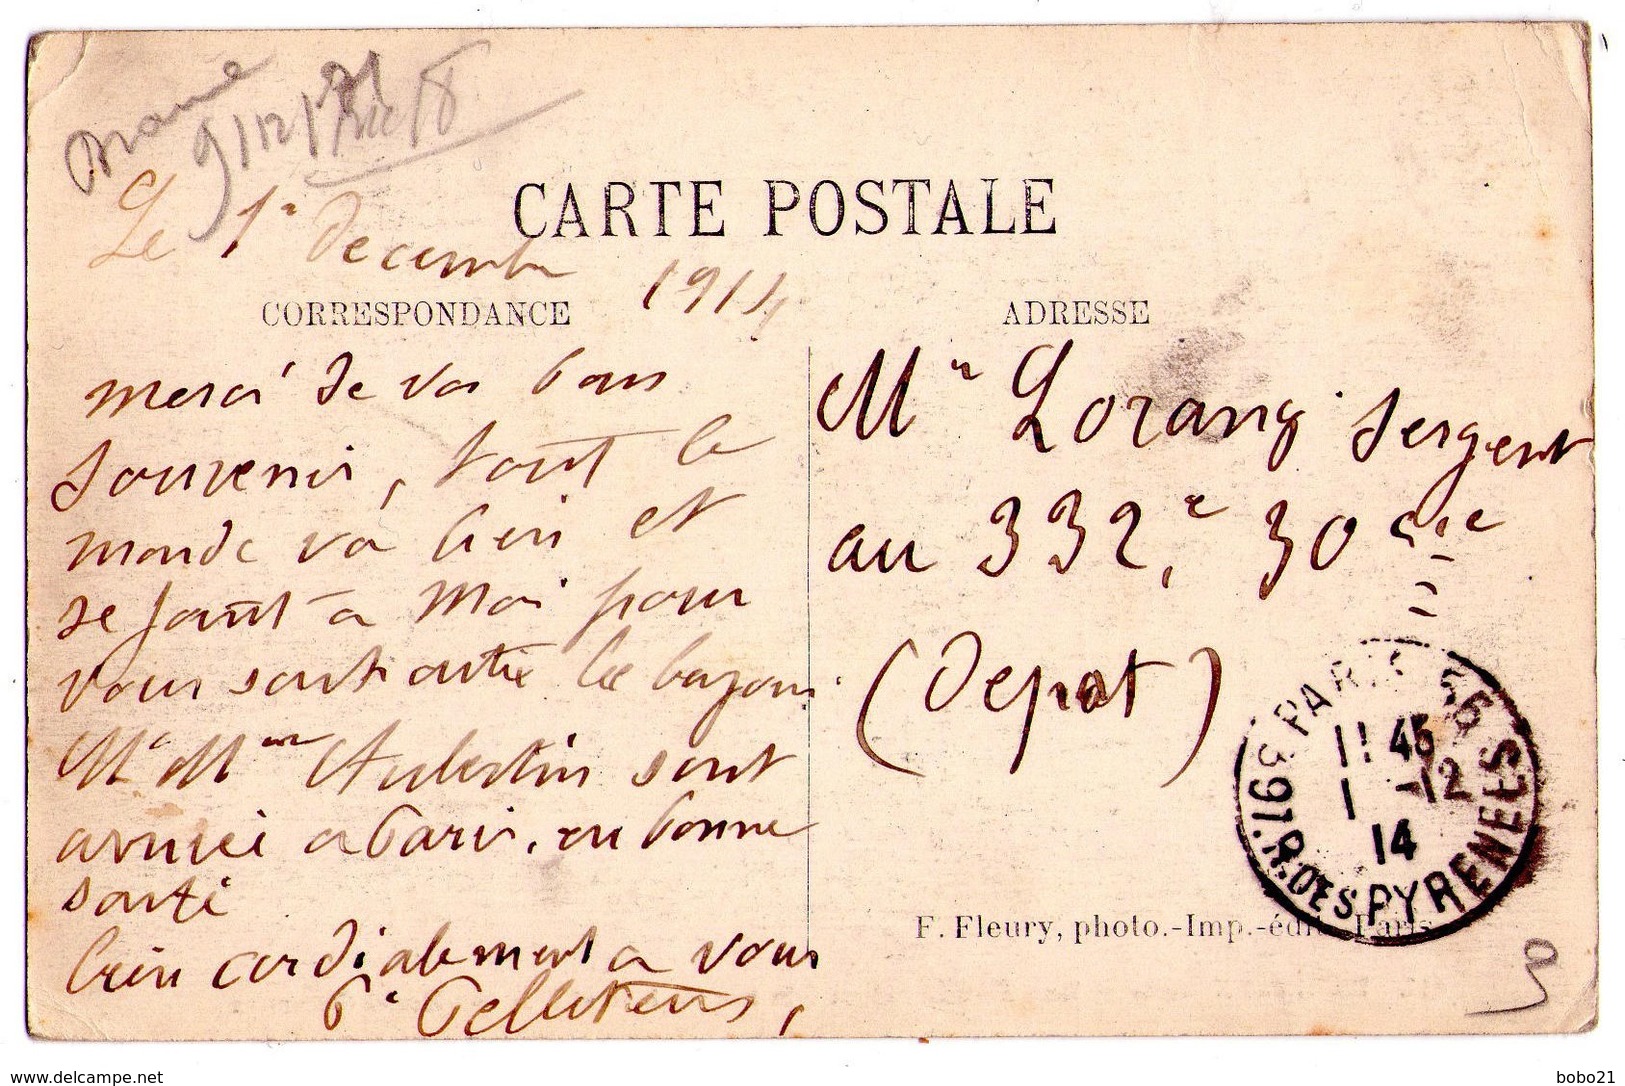 9/12/
Le 1er decembre
CARTE POSTALE
1914
CORRESPONDANCE
merci de vos bons
souvenir, tout le
monde va bien et
se joint a moi pour
vous
Mr Mme Aubertin sont
arrivéé a Paris, en bonne
santé
bien cordialement a vous
ADRESSE
Mr Lorang Sergent
au 332,e 30 cie
(Depot)
PARIS 56
11 45
1 -12
14
97. R. DES PYRENEES
F. Fleury, photo.-Imp.-édit. Paris
www.delcampe.net
bobo21